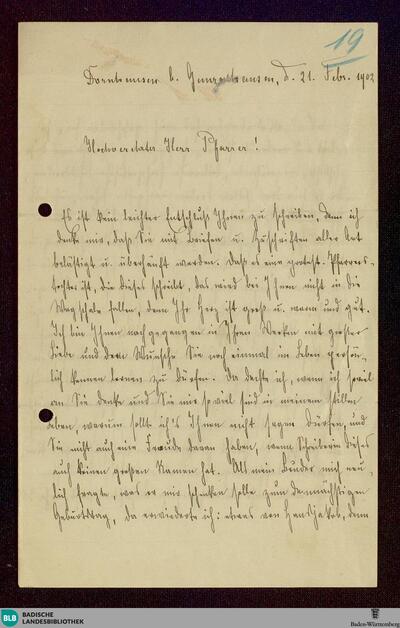 19
Dornhausen b. Gunzenhausen, d. 21. Febr. 1902
Hochverehrter Herr Pfarrer!
Es ist kein leichter Entschluß Ihnen zu schreiben, denn ich
denke mir, daß Sie mit Briefen u. Zuschriften aller Art
belästigt u. überhäuft werden. Daß es eine protest. Pfarrers-
tochter ist, die dieses schreibt, das wird bei Ihnen nicht in die
Wagschale fallen, denn Ihr Herz ist groß u. warm und gut.
Ich bin Ihnen nachgegangen in Ihren Werken mit großer
Liebe und dem Wunsche Sie noch einmal im Leben persön-
lich kennen lernen zu dürfen. Da dachte ich, wenn ich soviel
an Sie denke und Sie mir so viel sind in meinem stillen
Leben, warum sollte ich's Ihnen nicht sagen dürfen, und
Sie nicht auch eine Freude davon haben, wenn Schreiberin dieses
auch keinen großen Namen hat. Als mein Bruder mich neu-
lich fragte, was er mir schenken solle zum demnächstigen
Geburtstag, da erwiederte ich: etwas von Hansjakob, denn
BLB
BADISCHE
LANDESBIBLIOTHEK
Baden-Württemberg